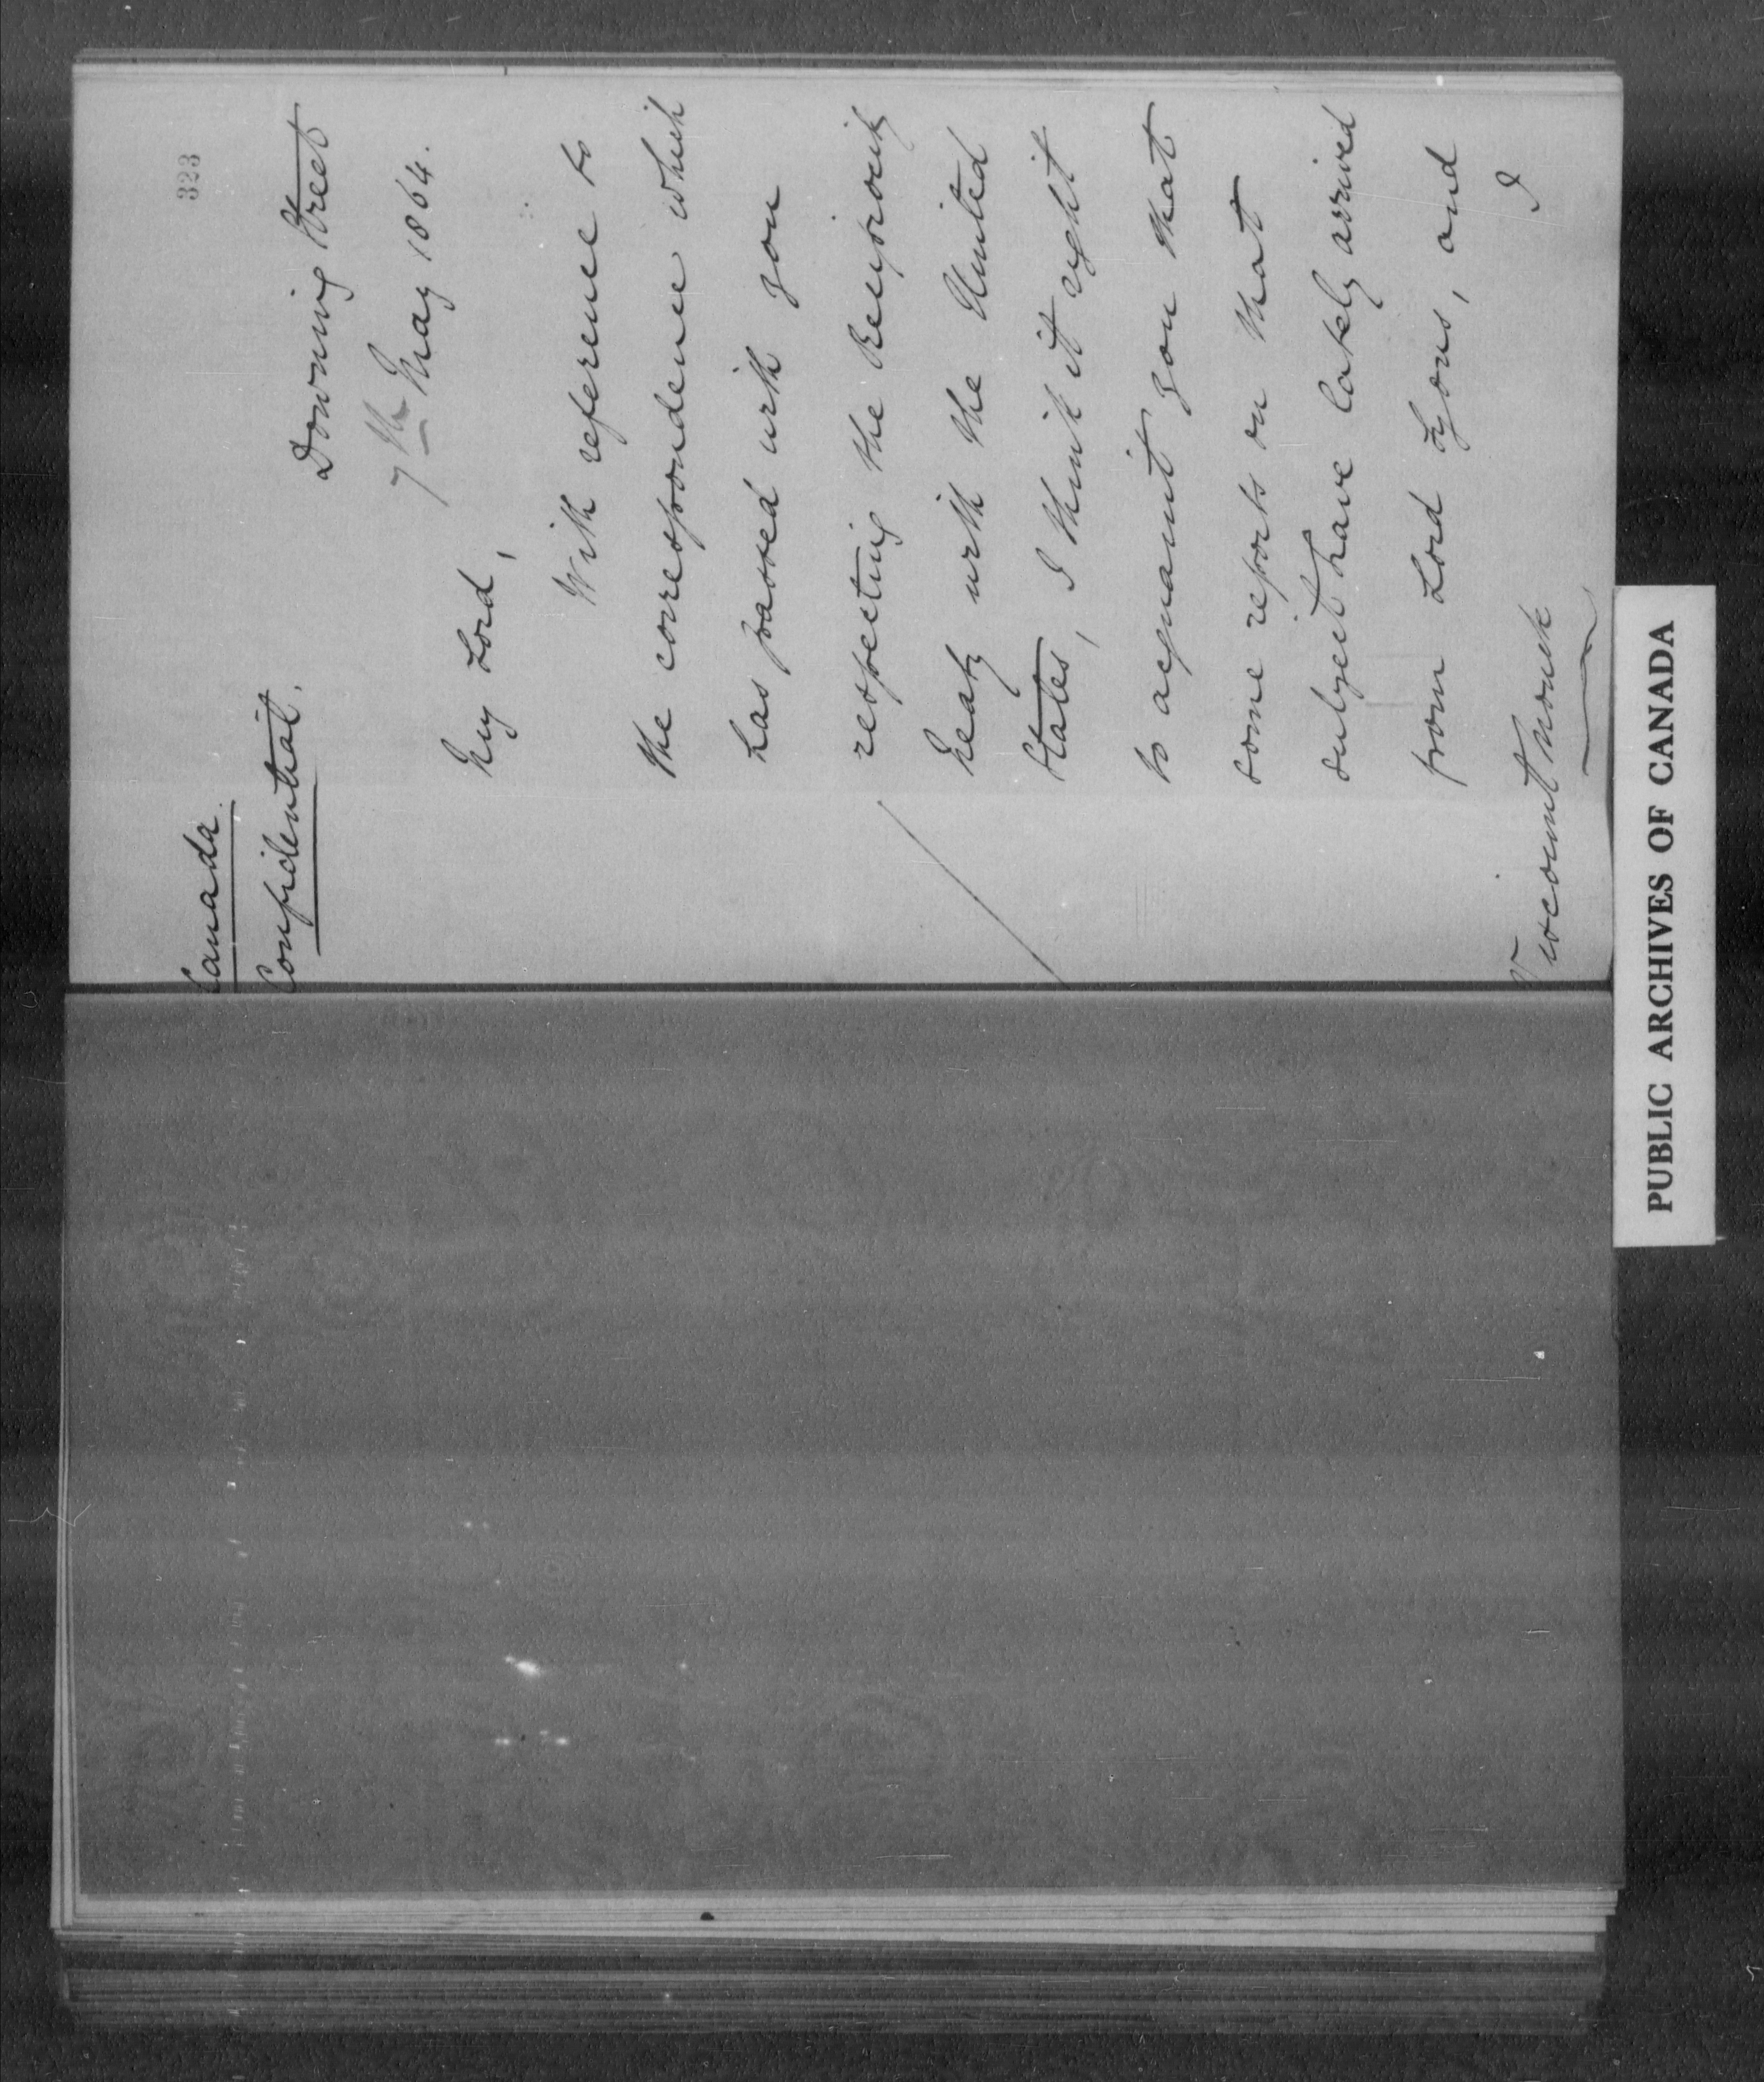 323
Canada.
Confidential.
Downing Street
7th May 1864.
My Lord,
With reference to
the correspondence which
has passed with you
respecting the Reciprocity
Treaty with the United
States, I think it right
to acquaint you that
some reports on that
subject have lately arrived
from Lord Lyons, and
I
Viscount Monck
PUBLIC ARCHIVES OF CANADA